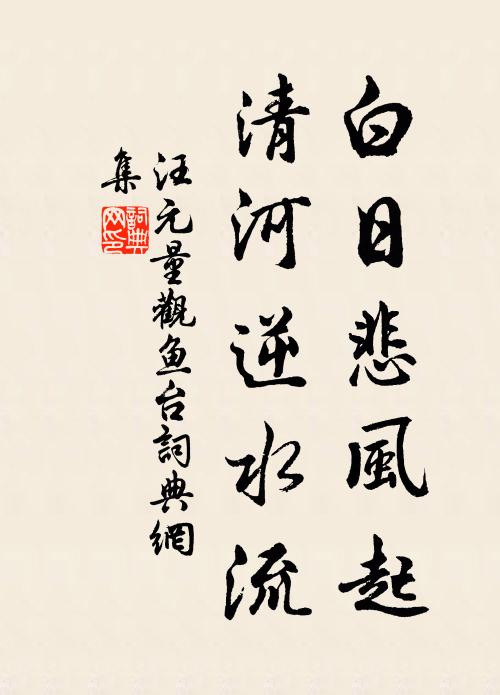 白日悲風起
清河逆水流
汪元量觀鱼台詞典網
集
詞典网印